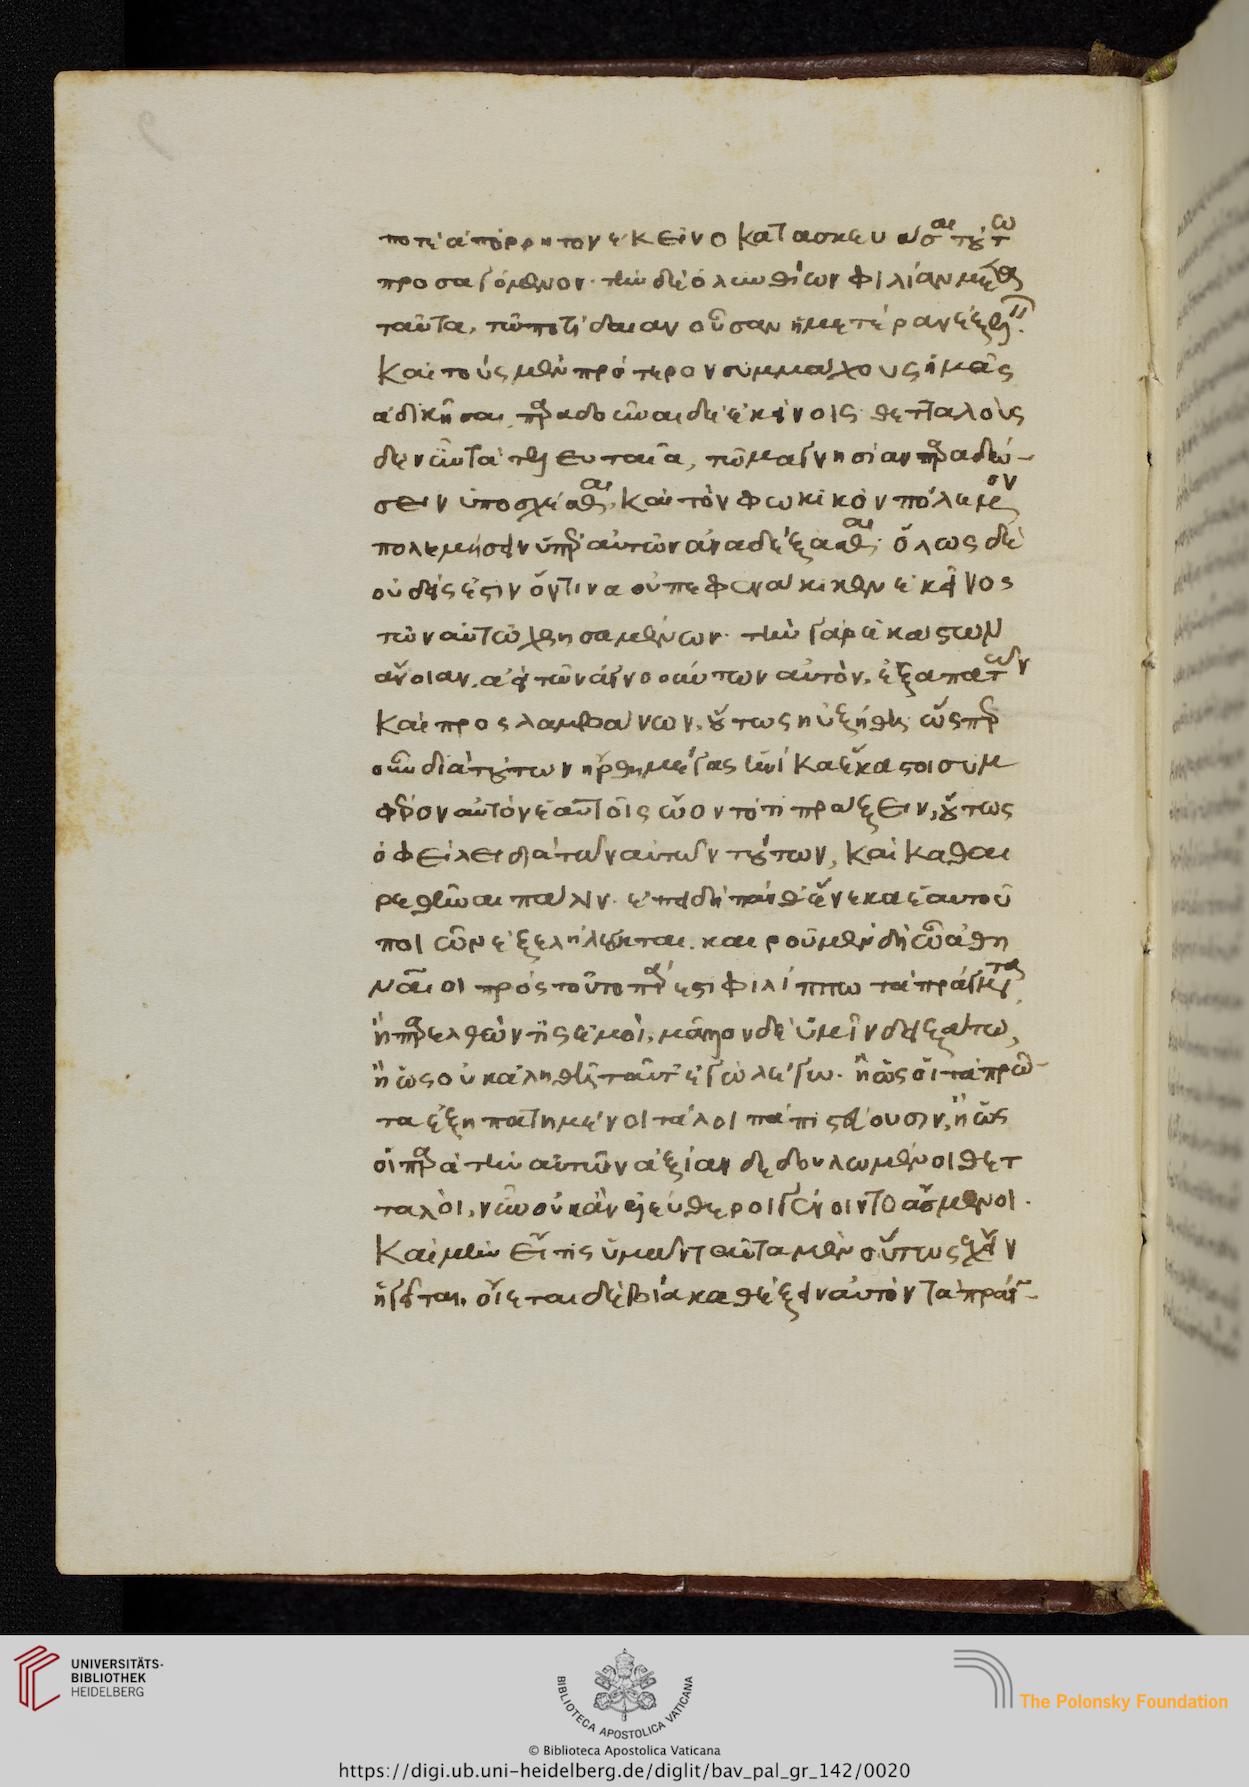 ποτὲ ἀπόρρητον ἐκεῖνο κατασκευάσαι τούτω
προσαγόμενον· τὴν δὲ ὀλυνθίων φιλίαν μετὰ
ταῦτα, τῶ ποτίδαιαν οὖσαν ἡμετέραν ἐξελεῖν
καὶ τοὺς μὲν πρότερον συμμάχους ἡμᾶς
ἀδικῆσαι, παραδοῦναι δὲ ἐκείνοις· θετταλοὺς
δὲ νῦν τὰ τελευταῖα, τῶ μαγνησίαν παραδώ-
σειν ὑποσχέσθαι, καὶ τὸν φωκικὸν πόλεμον
πολεμήσειν ὑπὲρ αὐτῶν ἀναδέξασθαι· ὅλως δὲ
οὐδείς ἐστιν ὅντινα οὐ πεφενάκικεν ἐκεῖνος
τῶν αὐτῶ χρησαμένων· τὴν γὰρ ἑκάστων
ἄνοιαν ἀεὶ τῶν ἀγνοούντων αὐτὸν, ἐξαπατῶν
καὶ προσλαμβάνων, οὕτως ηὐξήθη· ὥσπερ
οὖν διὰ τούτων ἤρθη μέγας ἡνίκα ἕκαστοι συμ
φέρον αὐτὸν ἑαυτοῖς ὤοντό τι πράξειν, οὕτως
ὀφείλει διὰ τῶν αὐτῶν τούτων, καὶ καθαι
ρεθῆναι πάλιν· ἐπειδὴ πάνθ' ἕνεκα ἑαυτοῦ
ποιῶν ἐξελήλεγκται. καιροῦ μὲν δὴ ὦ ἀθη
ναῖοι πρὸς τοῦτο πάρεστι φιλίππω τὰ πράγματα,
ἢ παρελθών τις ἐμοὶ, μᾶλλον δὲ ὑμῖν δειξάτω,
ἢ ὡς οὐκ ἀληθῆ ταῦτ' ἐγὼ λέγω· ἢ ὡς οἱ τὰ πρῶ-
τα ἐξηπατημένοι τὰ λοιπὰ πιστεύουσιν, ἢ ὡς
οἱ παρὰ τὴν αὐτῶν ἀξίαν δεδουλωμένοι θετ
ταλοὶ, νῦν οὐκ ἂν ἐλεύθεροι γένοιντο ἄσμενοι.
Καὶ μὴν εἴ τις ὑμῶν ταῦτα μὲν οὕτως ἔχειν
ἡγεῖται, οἴεται δὲ βία καθέξειν αὐτὸν τὰ πράγ-
UNIVERSITÄTS-
BIBLIOTHEK
HEIDELBERG
BIBLIOTECA APOSTOLICA VATICANA
The Polonsky Foundation
© Biblioteca Apostolica Vaticana
https://digi.ub.uni-heidelberg.de/diglit/bav_pal_gr_142/0020